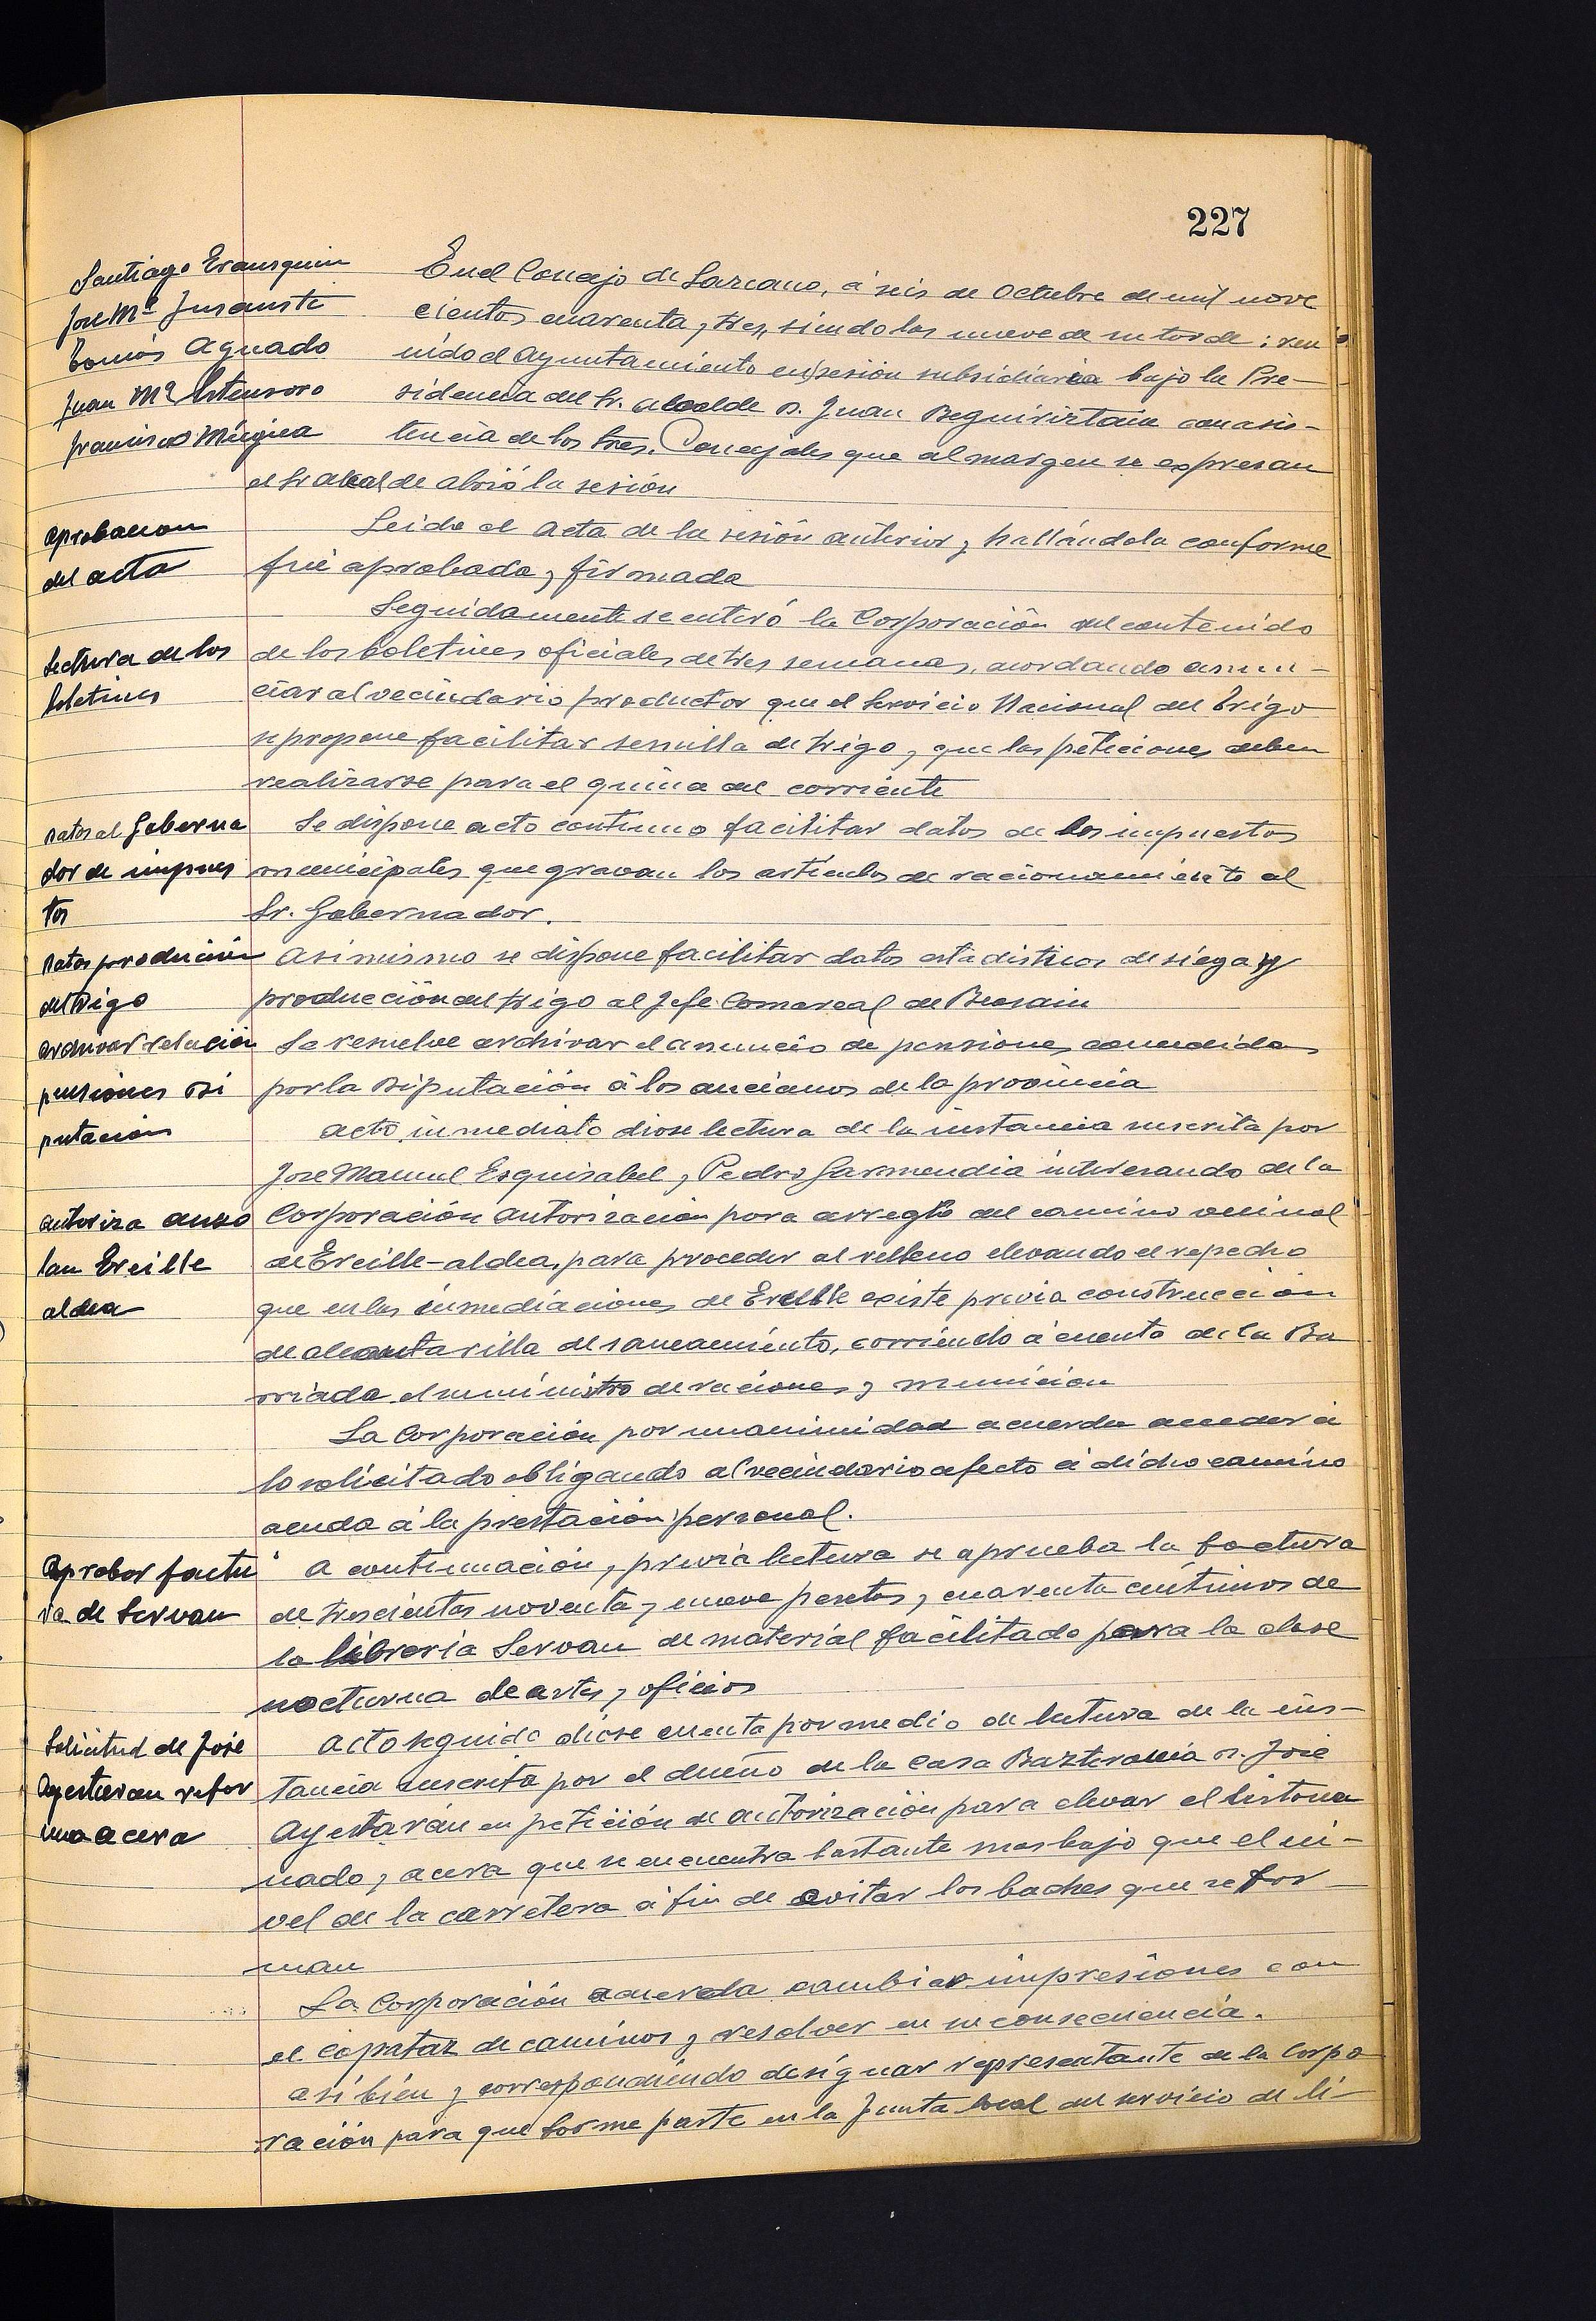 227
Santiago Erausquin
José Mª Insausti
Tomás Aguado
Juan Mª Astensoro
Francisco Múgica
En el Concejo de Lazcano, á seis de Octubre de mil nove
cientos cuarenta y tres, siendo las nueve de su tarde; reu
nido el Ayuntamiento en sesión subsidiaria bajo la Pre-
sidencia del Sr. Alcalde D. Juan Beguiristain con asis-
tencia de los Sres. Concejales que al margen se expresan
el Sr Alcalde abrió la sesión
Aprobacion
del acta
Leida el acta de la sesión anterior y hallándola conforme
fué aprobada y firmada
Lectura de los
boletines
Seguidamente se enteró la Corporación del contenido
de los boletines oficiales de tres semanas, acordando anun-
ciar al vecindario productor que el Servicio Nacional del Trigo
se propone facilitar semilla de trigo y que las peticiones deben
realizarse para el quince del corriente
Datos al Goberna
dor de impues
tos
Se dispone acto continuo facilitar datos de los impuestos
municipales que gravan los artículos de racionamiento al
Sr. Gobernador.
Datos producción
del trigo
Asimismo se dispone facilitar datos estadisticos de siega y
producción del trigo al Jefe Comarcal de Beasain
Archivar relación
pensiones Di
putación
Se resuelve archivar el anuncio de pensiones concedidas
por la Diputación á los ancianos de la provincia
Acto inmediato diose lectura de la instancia suscrita por
Jose Manuel Esquisabel y Pedro Garmendia interesando de la
Autoriza auzo
lan Ereille
aldea
Corporación autorización para arreglo del camino vecinal
de Ereille-aldea, para proceder al relleno elevando el repecho
que en las inmediaciones de Ereille existe previa construcción
de alcantarilla de saneamiento, corriendo á cuenta de la Ba
rriada el suministro de raciones y munición
La Corporación por unanimidad acuerda acceder á
lo solicitado obligando al vecindario afecto á dicho camino
acuda á la prestación personal.
Aprobar factu
ra de Servan
A continuación, previa lectura se aprueba la factura
de trescientas noventa y nueve pesetas y cuarenta céntimos de
la libreria Servan de material facilitado para la clase
nocturna de artes y oficios
Solicitud de José
Ayestaran refor
ma acera
Acto seguido diose cuenta por medio de lectura de la ins-
tancia suscrita por el dueño de la casa D. José
Ayestarán en petición de autorización para elevar el
nado y acera que se encuentra bastante mas bajo que el ni-
vel de la carretera á fin de evitar los baches que se for-
man
La Corporación acuerda cambiar impresiones con
el capataz de caminos y resolver en su consecuencia.
Asi bién y correspondiendo designar representante de la Corpo
ración para que forme parte en la Junta local del servicio de li-